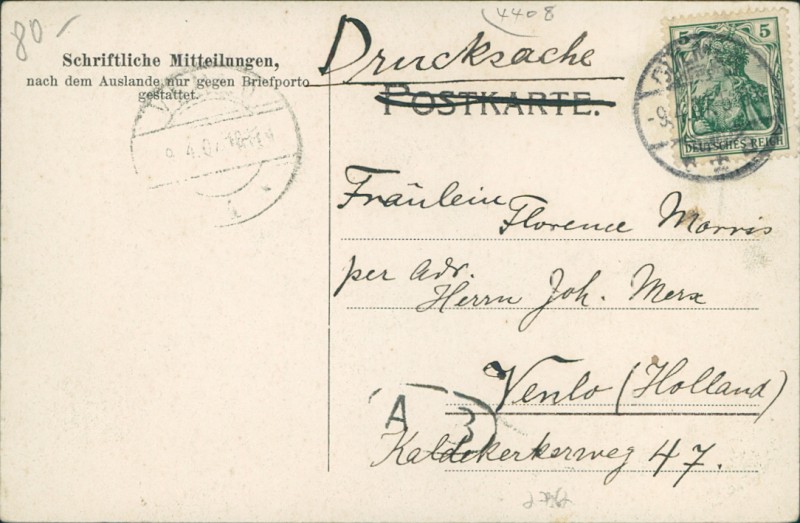 80-
4408
Schriftliche Mitteilungen,
nach dem Auslande nur gegen Briefporto
gestattet.
Drucksache
POSTKARTE.
5 5
DEUTSCHES REICH
Fräulein Florence Morris
per Adr.
Herrn Joh. Merx
Venlo (Holland)
A 3
Kaldekerkerweg 47.